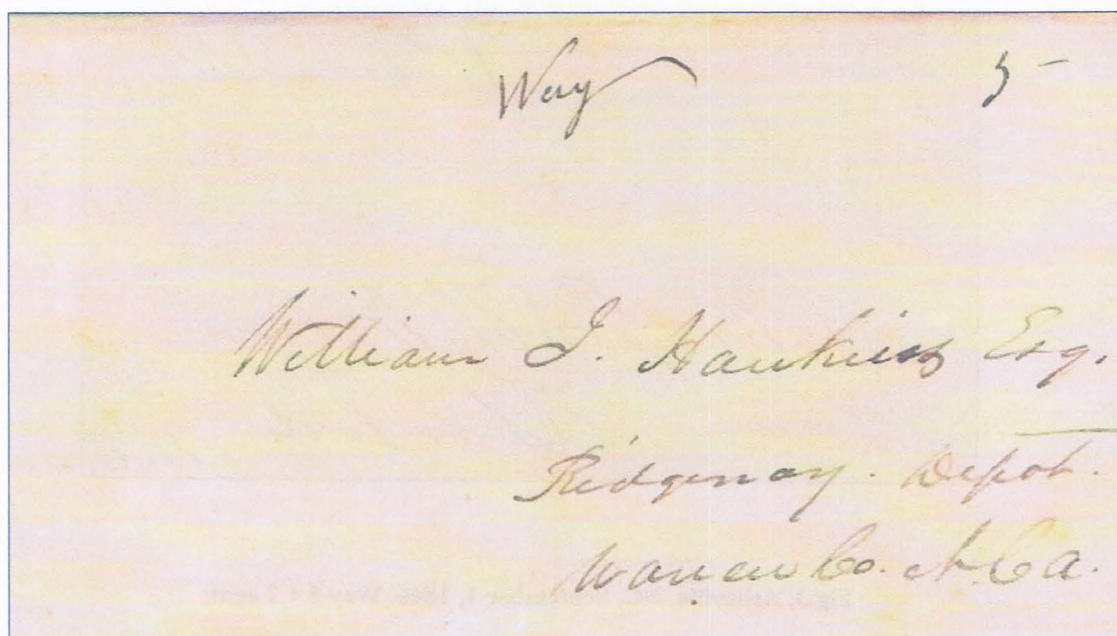 Way 5
William J. Hawkins Esq.
Ridgeway. Depot.
Warren Co. N. Ca.